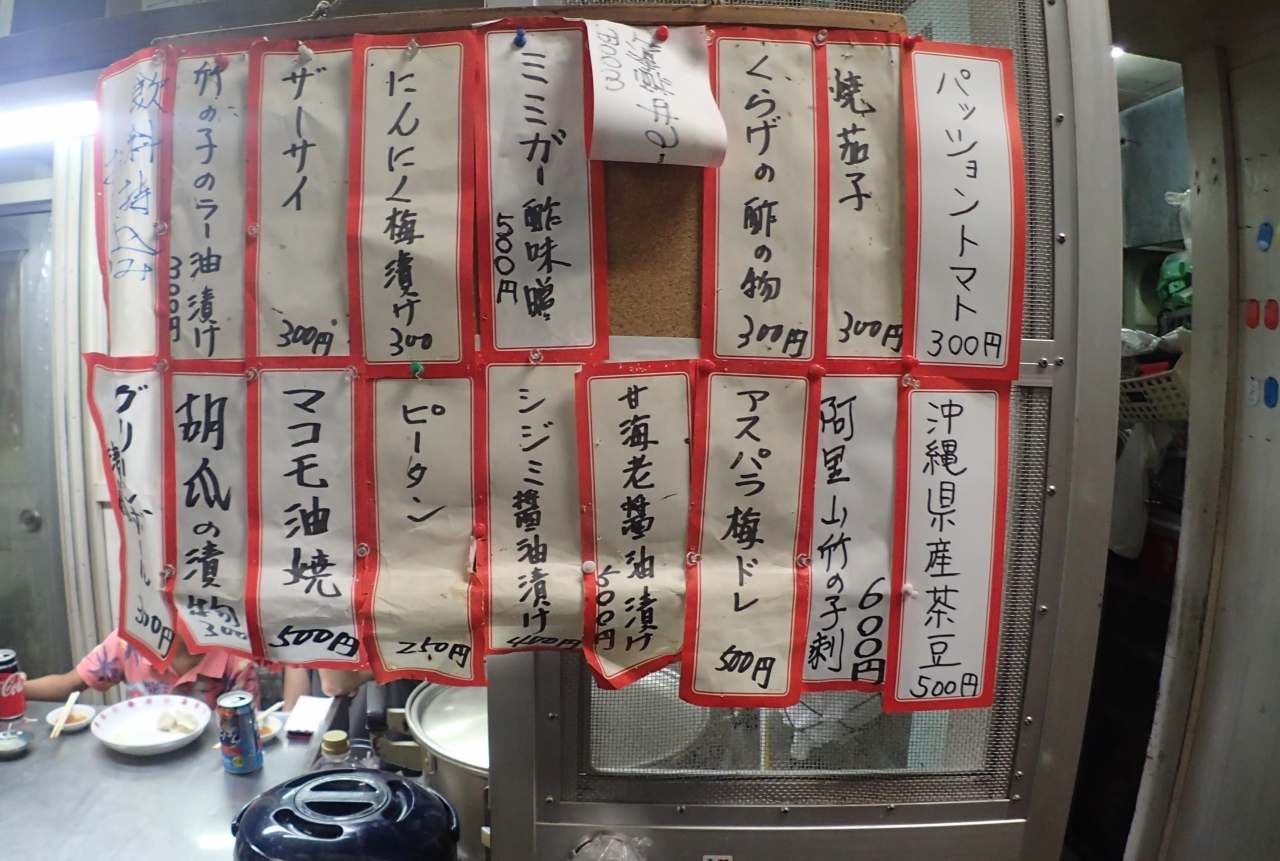 パッショントマト
300円
焼茄子
300円
くらげの酢の物
300円
ミミガー酢味噌
500円
にんにく梅漬け
300
ザーサイ
300円
竹の子のラー油漬け
300円
飲料持込み
沖縄県産茶豆
500円
阿里山竹の子刺
600円
アスパラ梅ドレ
500円
甘海老醤油漬け
500円
シジミ醤油漬け
400円
ピータン
250円
マコモ油焼
500円
胡瓜の漬物
300
グリーン
300円